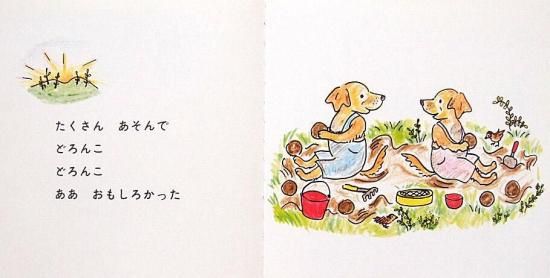 たくさん　あそんで
どろんこ
どろんこ
ああ　おもしろかった